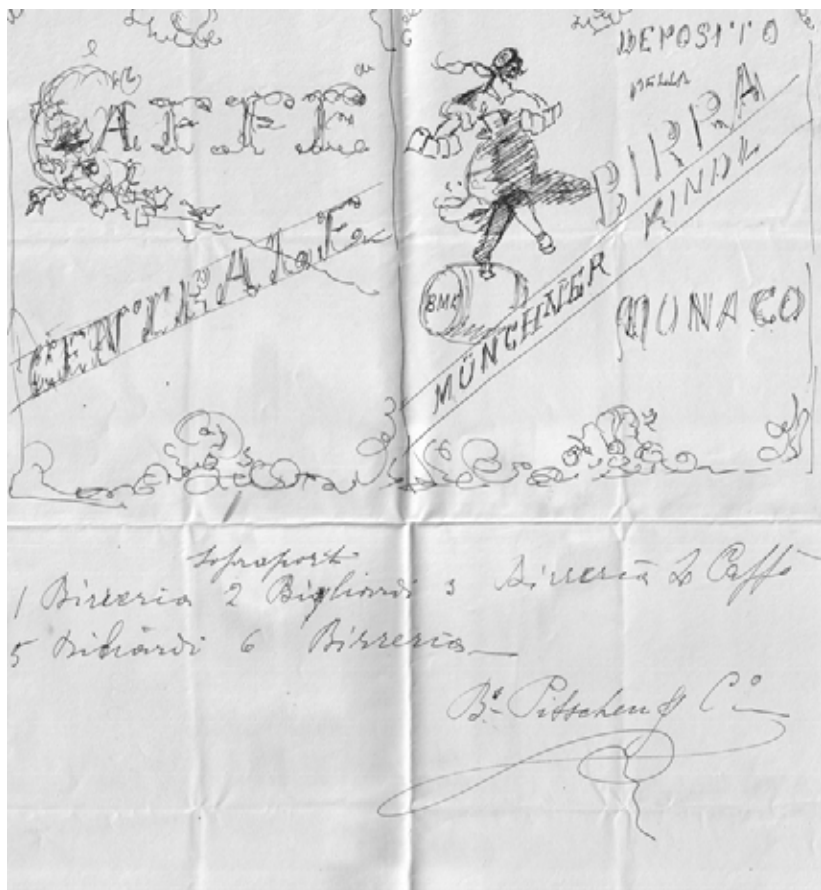 CAFFE
CENTRALE
DEPOSITO
DELLA
BIRRA
MÜNCHNER KINDL
BMK
MONACO
sopraport
1 Birreria 2 Bigliardi 3 Birreria 4 Caffè
5 Biliardi 6 Birreria
Pitschen & Cº